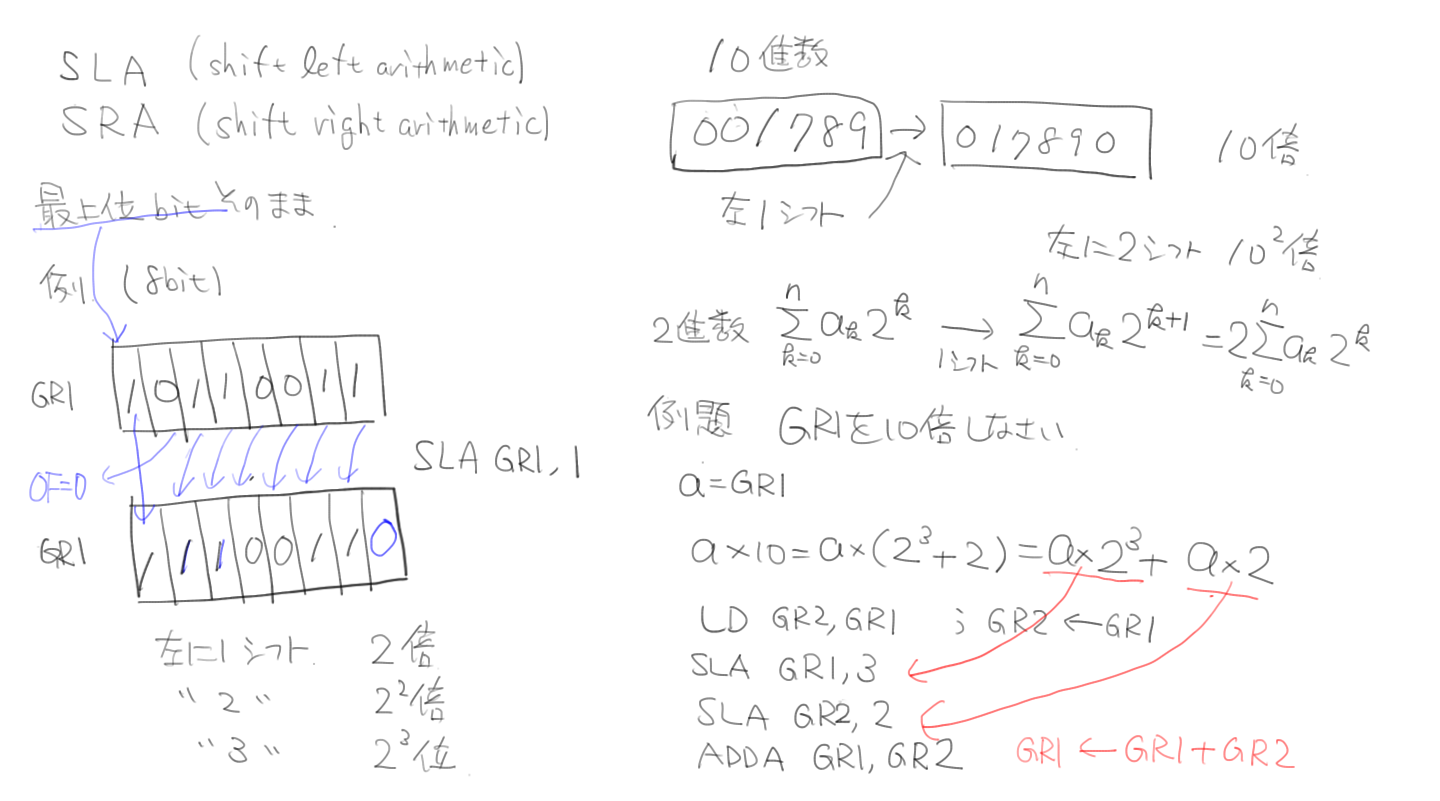 SLA (shift left arithmetic)
SRA (shift right arithmetic)
最上位 bit そのまま.
例 (8bit)
GR1 1 0 1 1 0 0 1 1
SLA GR1, 1
OF=0
GR1 1 1 1 0 0 1 1 0
左に1シフト. 2倍
〃 2 〃 2²倍
〃 3 〃 2³位
10進数
001789 → 017890 10倍
左1シフト
左に2シフト 10²倍
2進数 \sum_{k=0}^{n} a_k 2^k → 1シフト \sum_{k=0}^{n} a_k 2^{k+1} = 2\sum_{k=0}^{n} a_k 2^k
例題 GR1を10倍しなさい
a=GR1
a×10=a×(2³+2)=a×2³+a×2
LD GR2, GR1 ; GR2 ←GR1
SLA GR1, 3
SLA GR2, 2
ADDA GR1, GR2 GR1 ← GR1+GR2